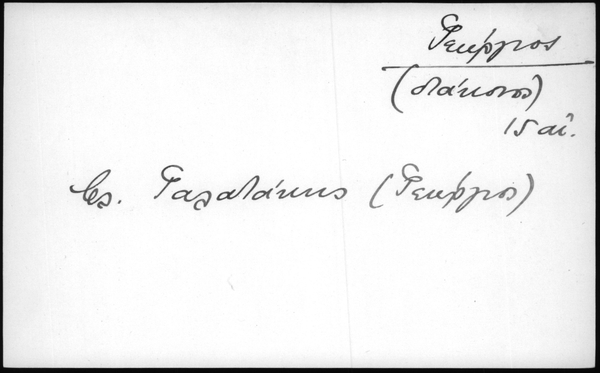 Γεώργιος
(διάκονος)
15 αἰ.
βλ. Γαλατάκης (Γεώργιος)